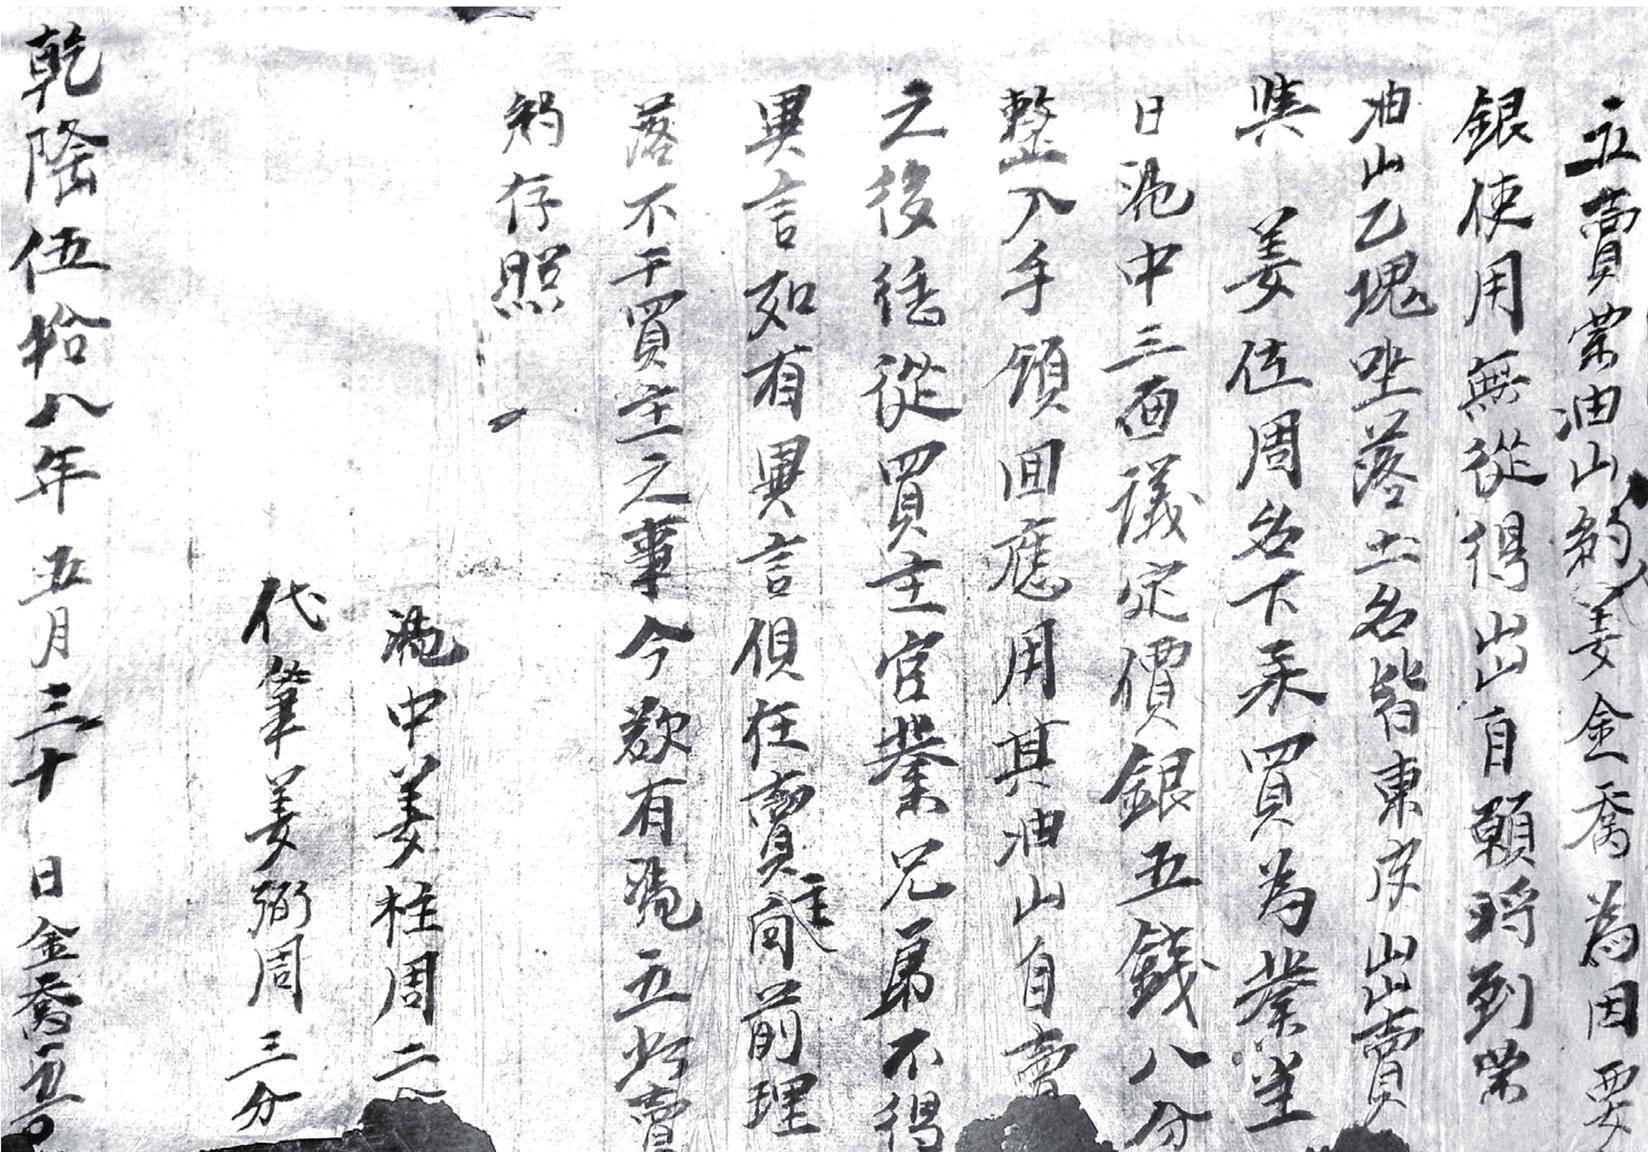 立賣荣油山約姜金喬為因要
銀使用無從得出自願將到荣
油山乙塊坐落土名皆東皮出賣
與姜位周名下承買為業當
日凴中三面議定價銀五錢八分
整入手領回應用其油山自賣
之後恁從買主官業兄弟不得
異言如有異言俱在賣主向前理
落不干買主之事今欲有凴立此賣
約存照
凴中姜柱周二
代筆姜弼周三分
乾隆伍拾八年五月三十日金喬立